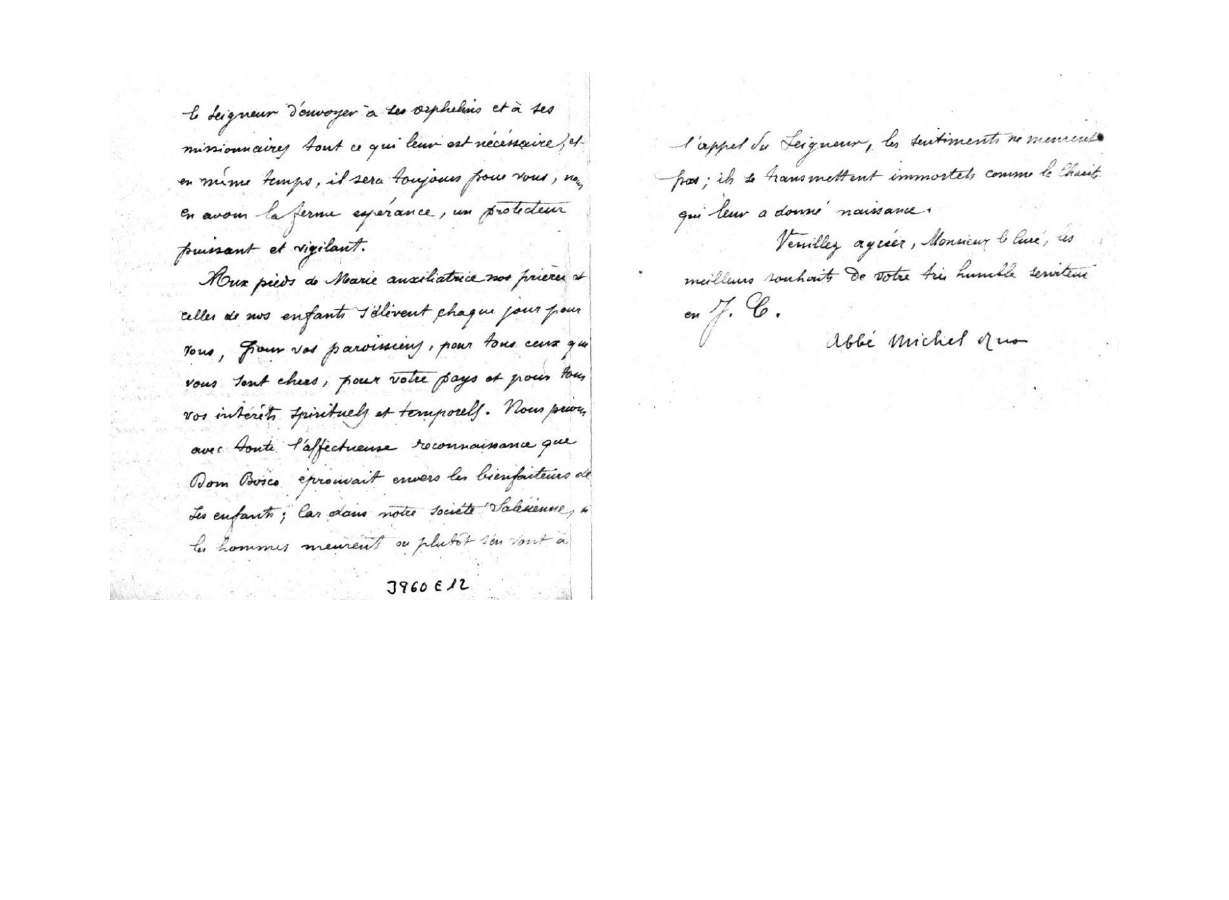 le Seigneur d'envoyer à ses orphelins et à ses
missionnaires tout ce qui leur est nécéssaire, et
en même temps, il sera toujours pour vous, nous
en avons la ferme espérance, un protecteur
puissant et vigilant.
Aux pieds de Marie auxiliatrice nos prières et
celles de nos enfants s'élèvent chaque jour pour
vous, pour vos paroissiens, pour tous ceux qui
vous sont chers, pour votre pays et pour tous
vos intérêts spirituels et temporels. Nous prions
avec toute l'affectueuse reconnaissance que
Dom Bosco éprouvait envers les bienfaiteurs de
ses enfants; Car dans notre société Salésienne, si
les hommes meurent ou plutôt s'en vont à
J960 E12
l'appel du Seigneur, les sentiments ne meurent
pas; ils se transmettent immortels comme le Christ
qui leur a donné naissance.
Veuillez agréer, Monsieur le Curé, les
meilleurs souhaits de votre très humble serviteur
en J. C.
Abbé Michel Rua